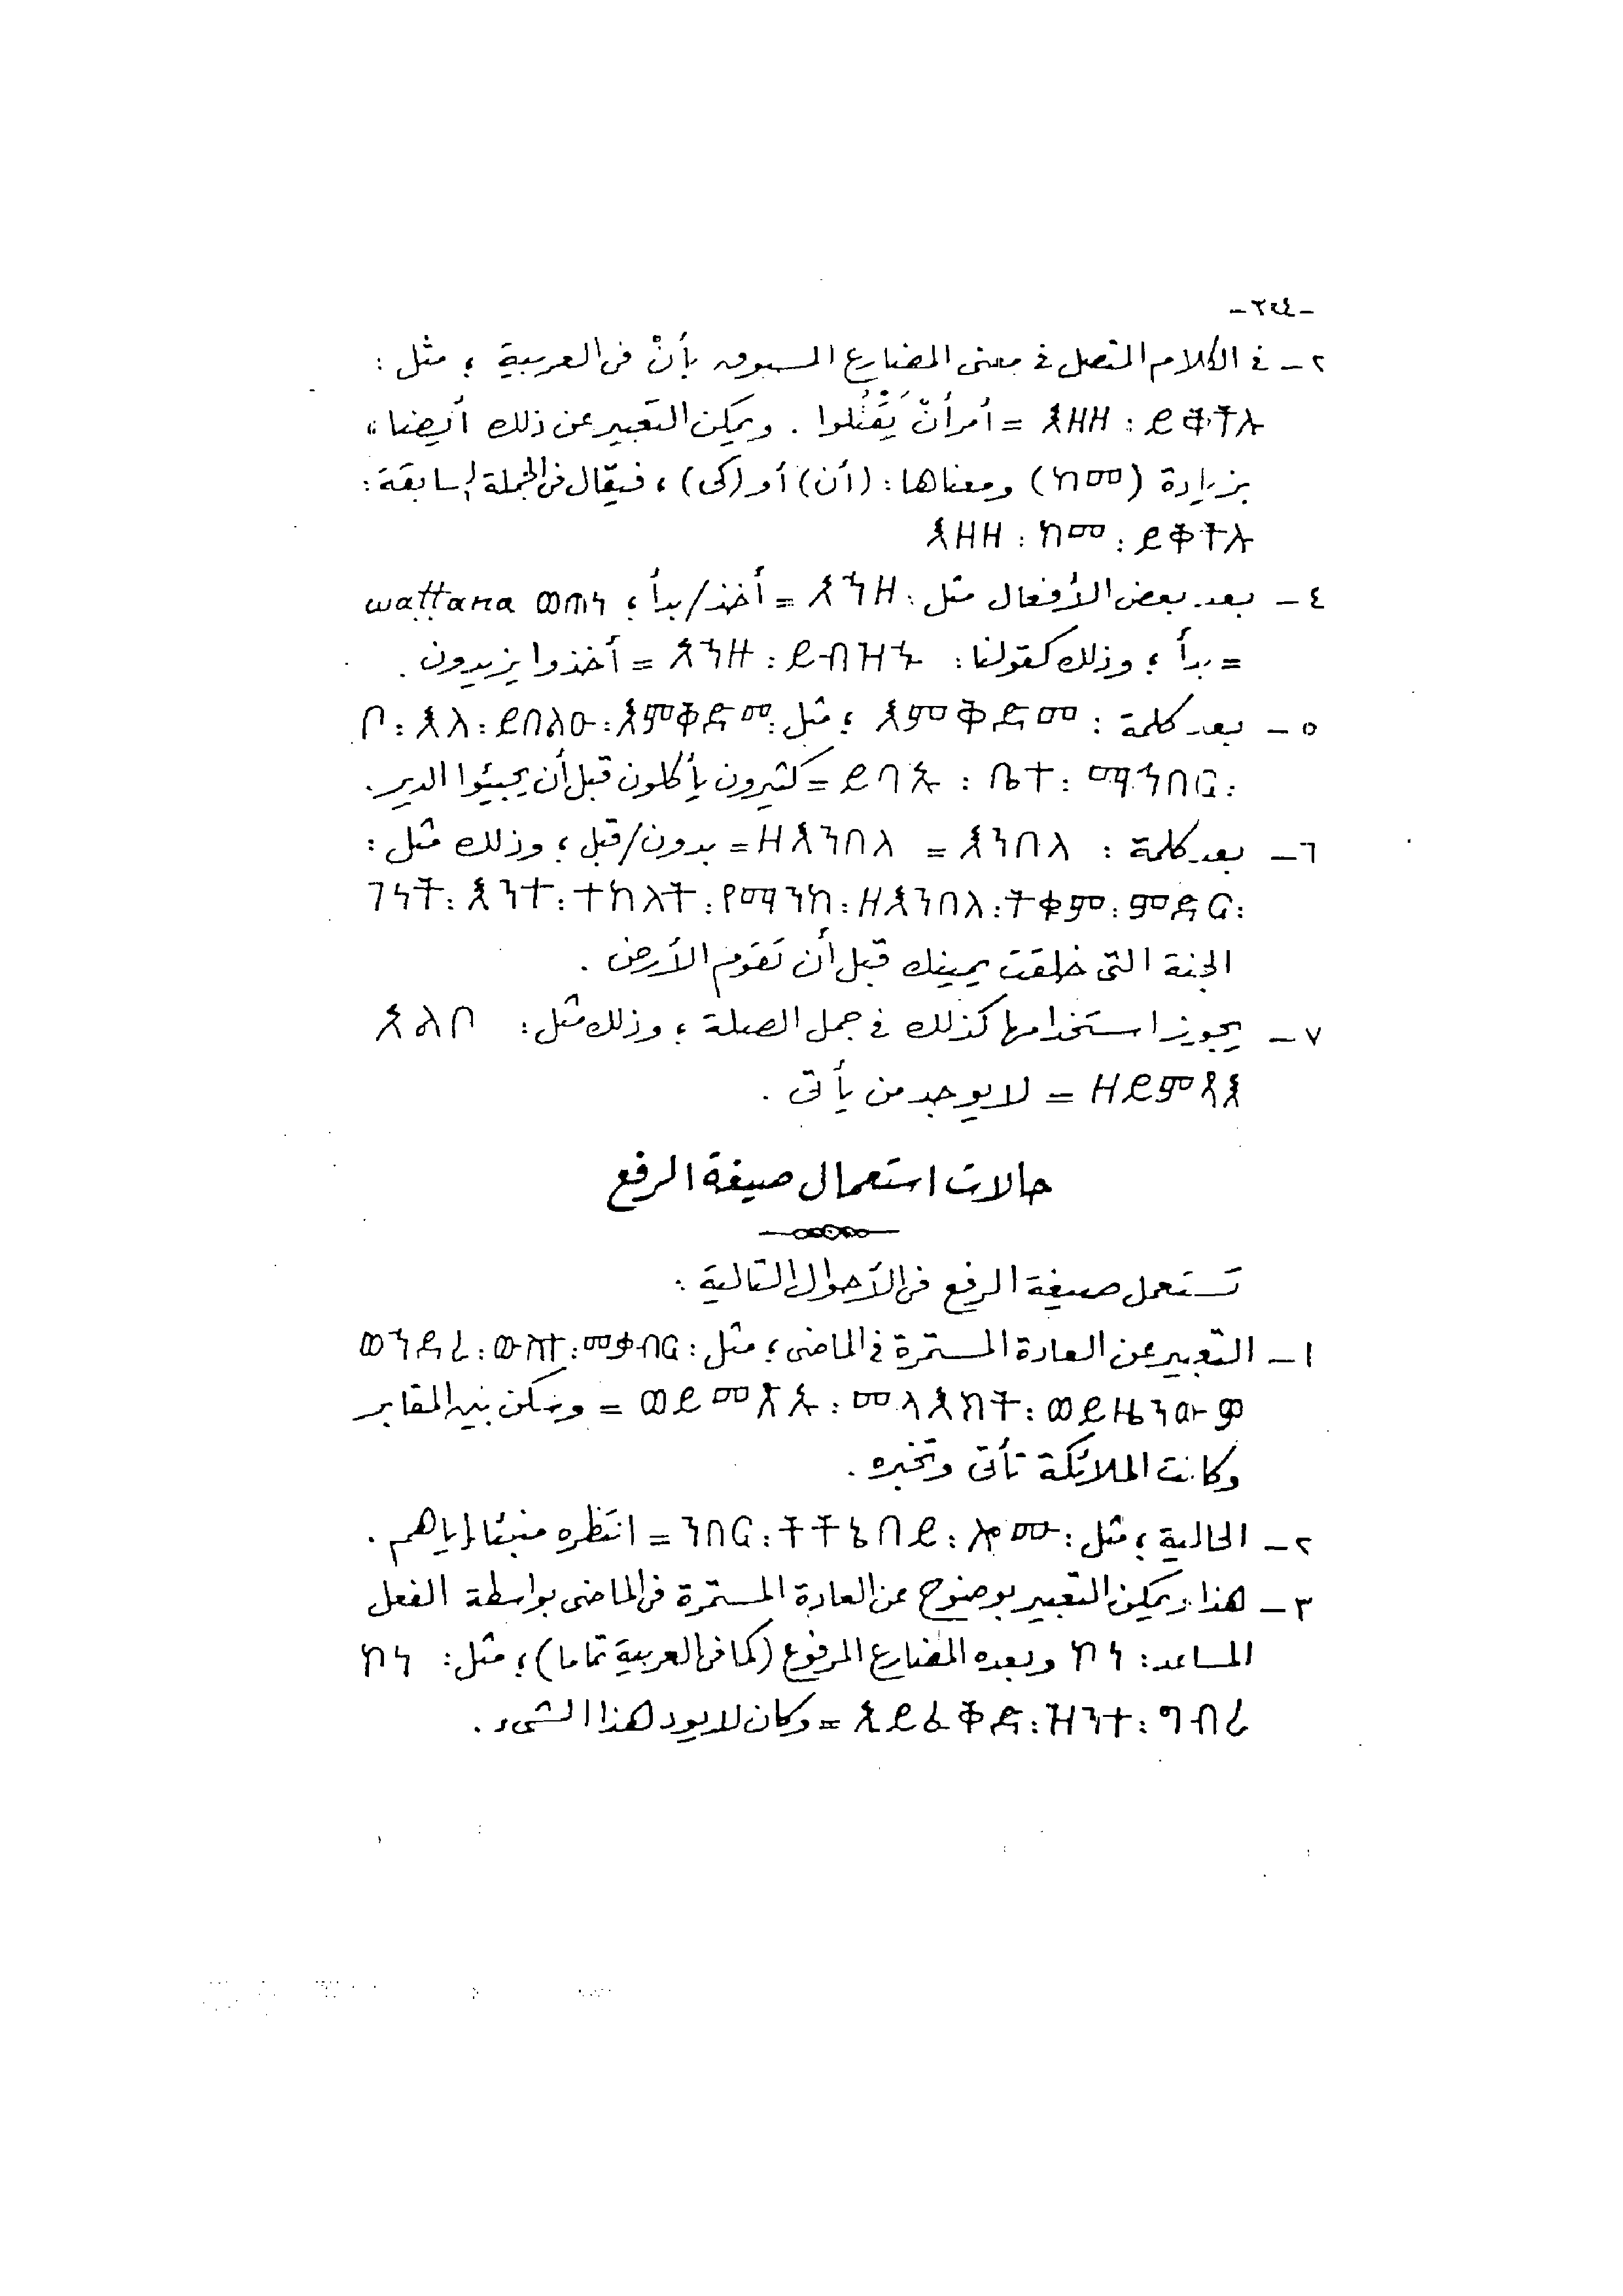 -٢٤٤-
٢- فى الكلام المتصل فى معنى المضارع المسبوق بأنْ فى العربية ؛ مثل :
አዘዘ : ይቅትሉ = أمر أنْ يَقْتُلوا . ويمكن التعبير عن ذلك أيضا ،
بزيادة (ከመ) ومعناها : (أن) أو (كى) ، فيقال فى الجملة السابقة :
አዘዘ : ከመ : ይቅትሉ
٤- بعد بعض الأفعال مثل : አኀዘ = أخذ/بدأ ؛ ወጠነ wattana
= بدأ ؛ وذلك كقولنا : አኀዘ : ይብዝኁ = أخذوا يزيدون .
٥- بعد كلمة : እምቅድመ ؛ مثل : ቦ : እለ : ይበልዑ : እምቅድመ
ይባኡ : ቤተ : ማኅበር : = كثيرون يأكلون قبل أن يجيئوا الدير .
٦- بعد كلمة : እንበለ = ዘእንበለ = بدون/قبل ؛ وذلك مثل :
ገነት : እንተ : ተከለት : የማንከ : ዘእንበለ : ትቁም : ምድር :
الجنة التى خلقت يمينك قبل أن تقوم الأرض .
٧- يجوز استخدامها كذلك فى جمل الصلة ؛ وذلك مثل : አልቦ
ዘይምጻእ = لا يوجد من يأتى .
حالات استعمال صيغة الرفع
تستعمل صيغة الرفع فى الأحوال التالية :
١- التعبير عن العادة المستمرة فى الماضى ؛ مثل : ወኀደረ : ውስተ : መቃብር
ወይመጽኡ : መላእክት : ወይዜንውዎ = وسكن بين المقابر
وكانت الملائكة تأتى وتخبره .
٢- الحالية ؛ مثل : ንበር : ትትኔበይ : ሎሙ = انتظره منبئا إياهم .
٣- هذا ويمكن التعبير بوضوح عن العادة المستمرة فى الماضى بواسطة الفعل
المساعد : ከነ وبعده المضارع المرفوع (كما فى العربية تماما) ؛ مثل : ከነ
ኢይፈቅድ : ዘንተ : ግብረ = وكان لا يود هذا الشىء .